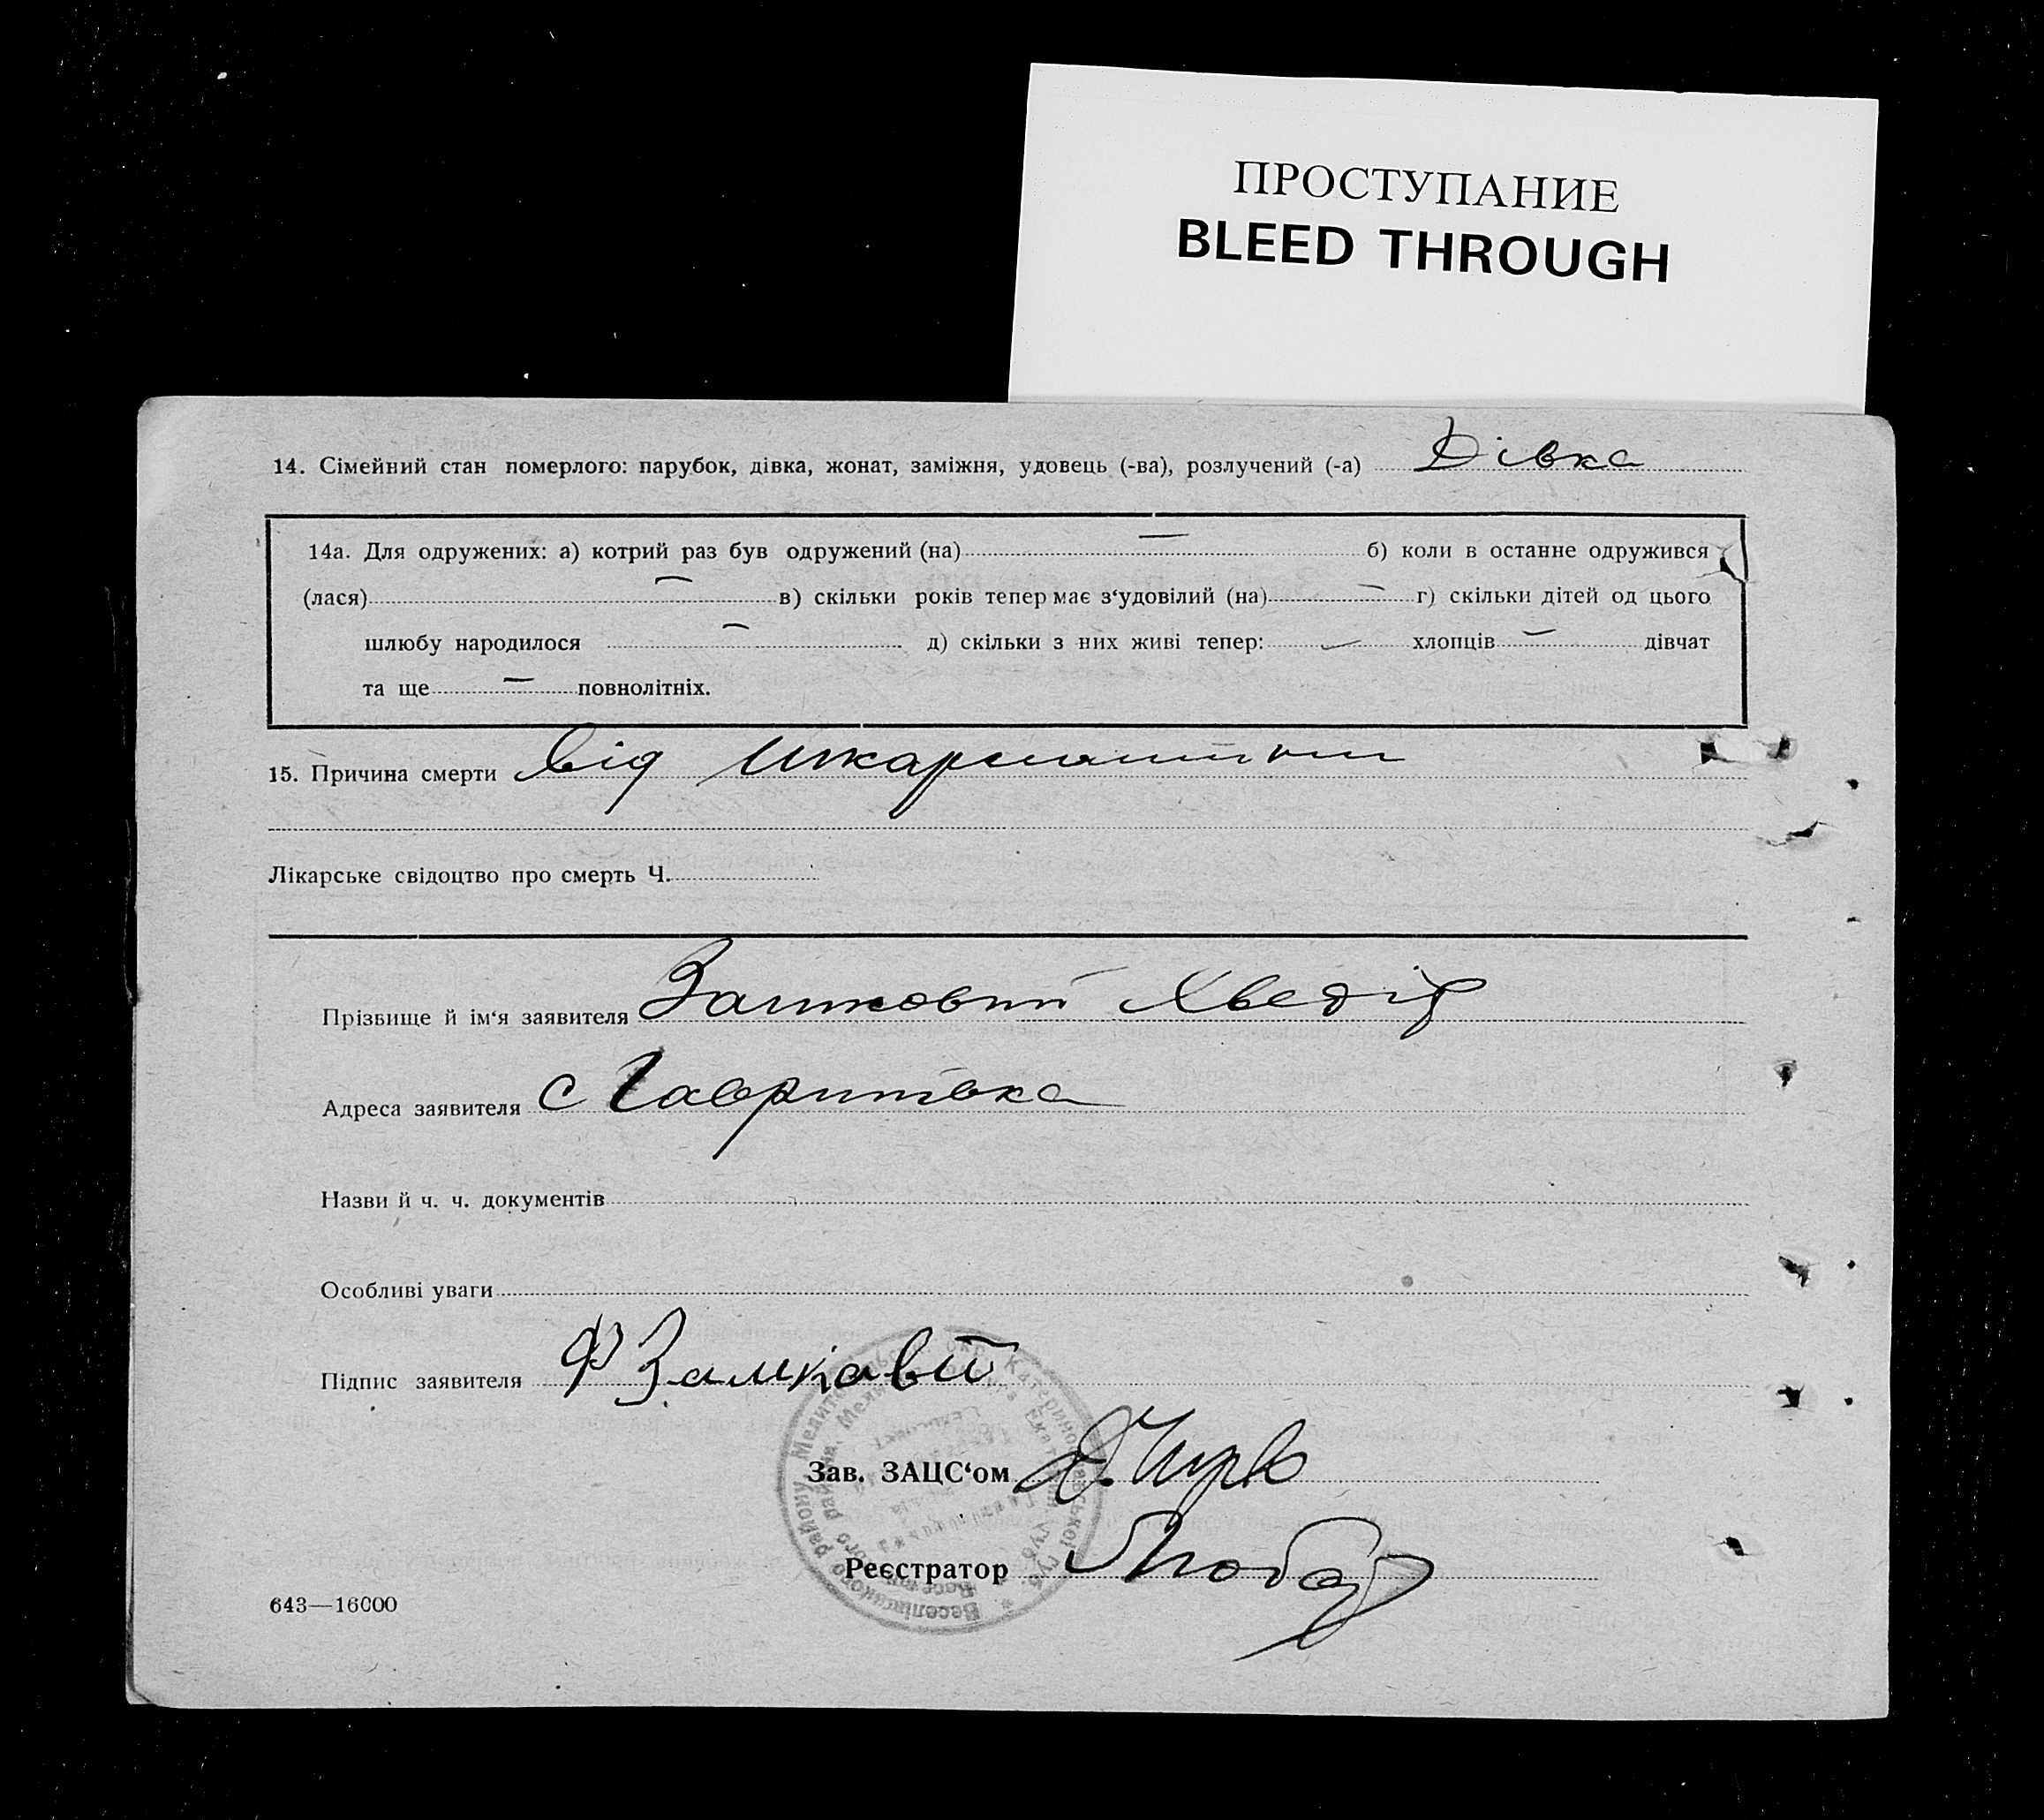 ПРОСТУПАНИЕ
BLEED THROUGH
14. Сімейний стан померлого: парубок, дівка, жонат, заміжня, удовець (-ва), розлучений (-а) Дівка
14а. Для одружених: а) котрий раз був одружений (на) — б) коли в останне одружився
(лася) — в) скільки років тепер має з‘удовілий (на) — г) скільки дітей од цього
шлюбу народилося — д) скільки з них живі тепер: — хлопців — дівчат
та ще — повнолітніх.
15. Причина смерти від шкарлатини
Лікарське свідоцтво про смерть Ч.
Прізвище й ім‘я заявителя Замковий Хведір
Адреса заявителя с Гаврилівка
Назви й ч. ч. документів
Особливі уваги
Підпис заявителя Ф Замкавій
Зав. ЗАЦС‘ом
Реєстратор
643—16000